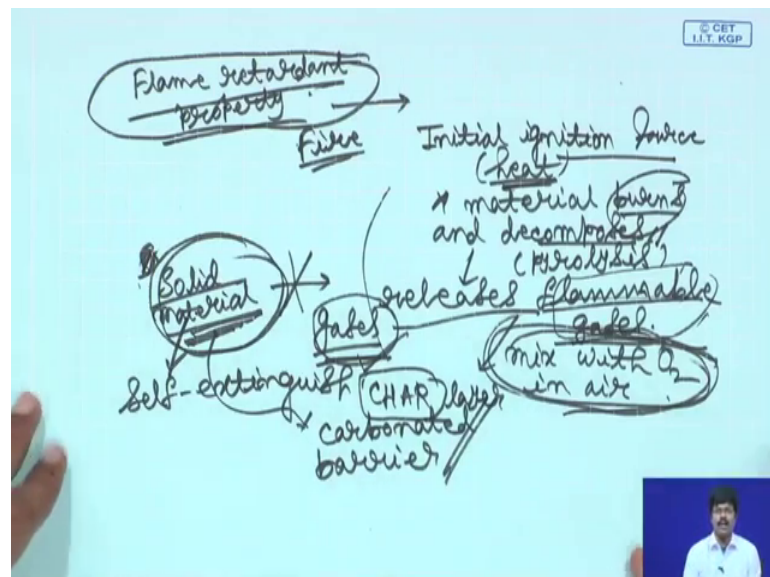 © CET
I.I.T. KGP
Flame retardant
property
Fire
Initial ignition source
(heat)
* material burns
and decomposes
(Pyrolysis)
releases flammable
gases.
mix with O2
in air
Solid
material
gases
Self-extinguish
CHAR layer
carbonated
barrier